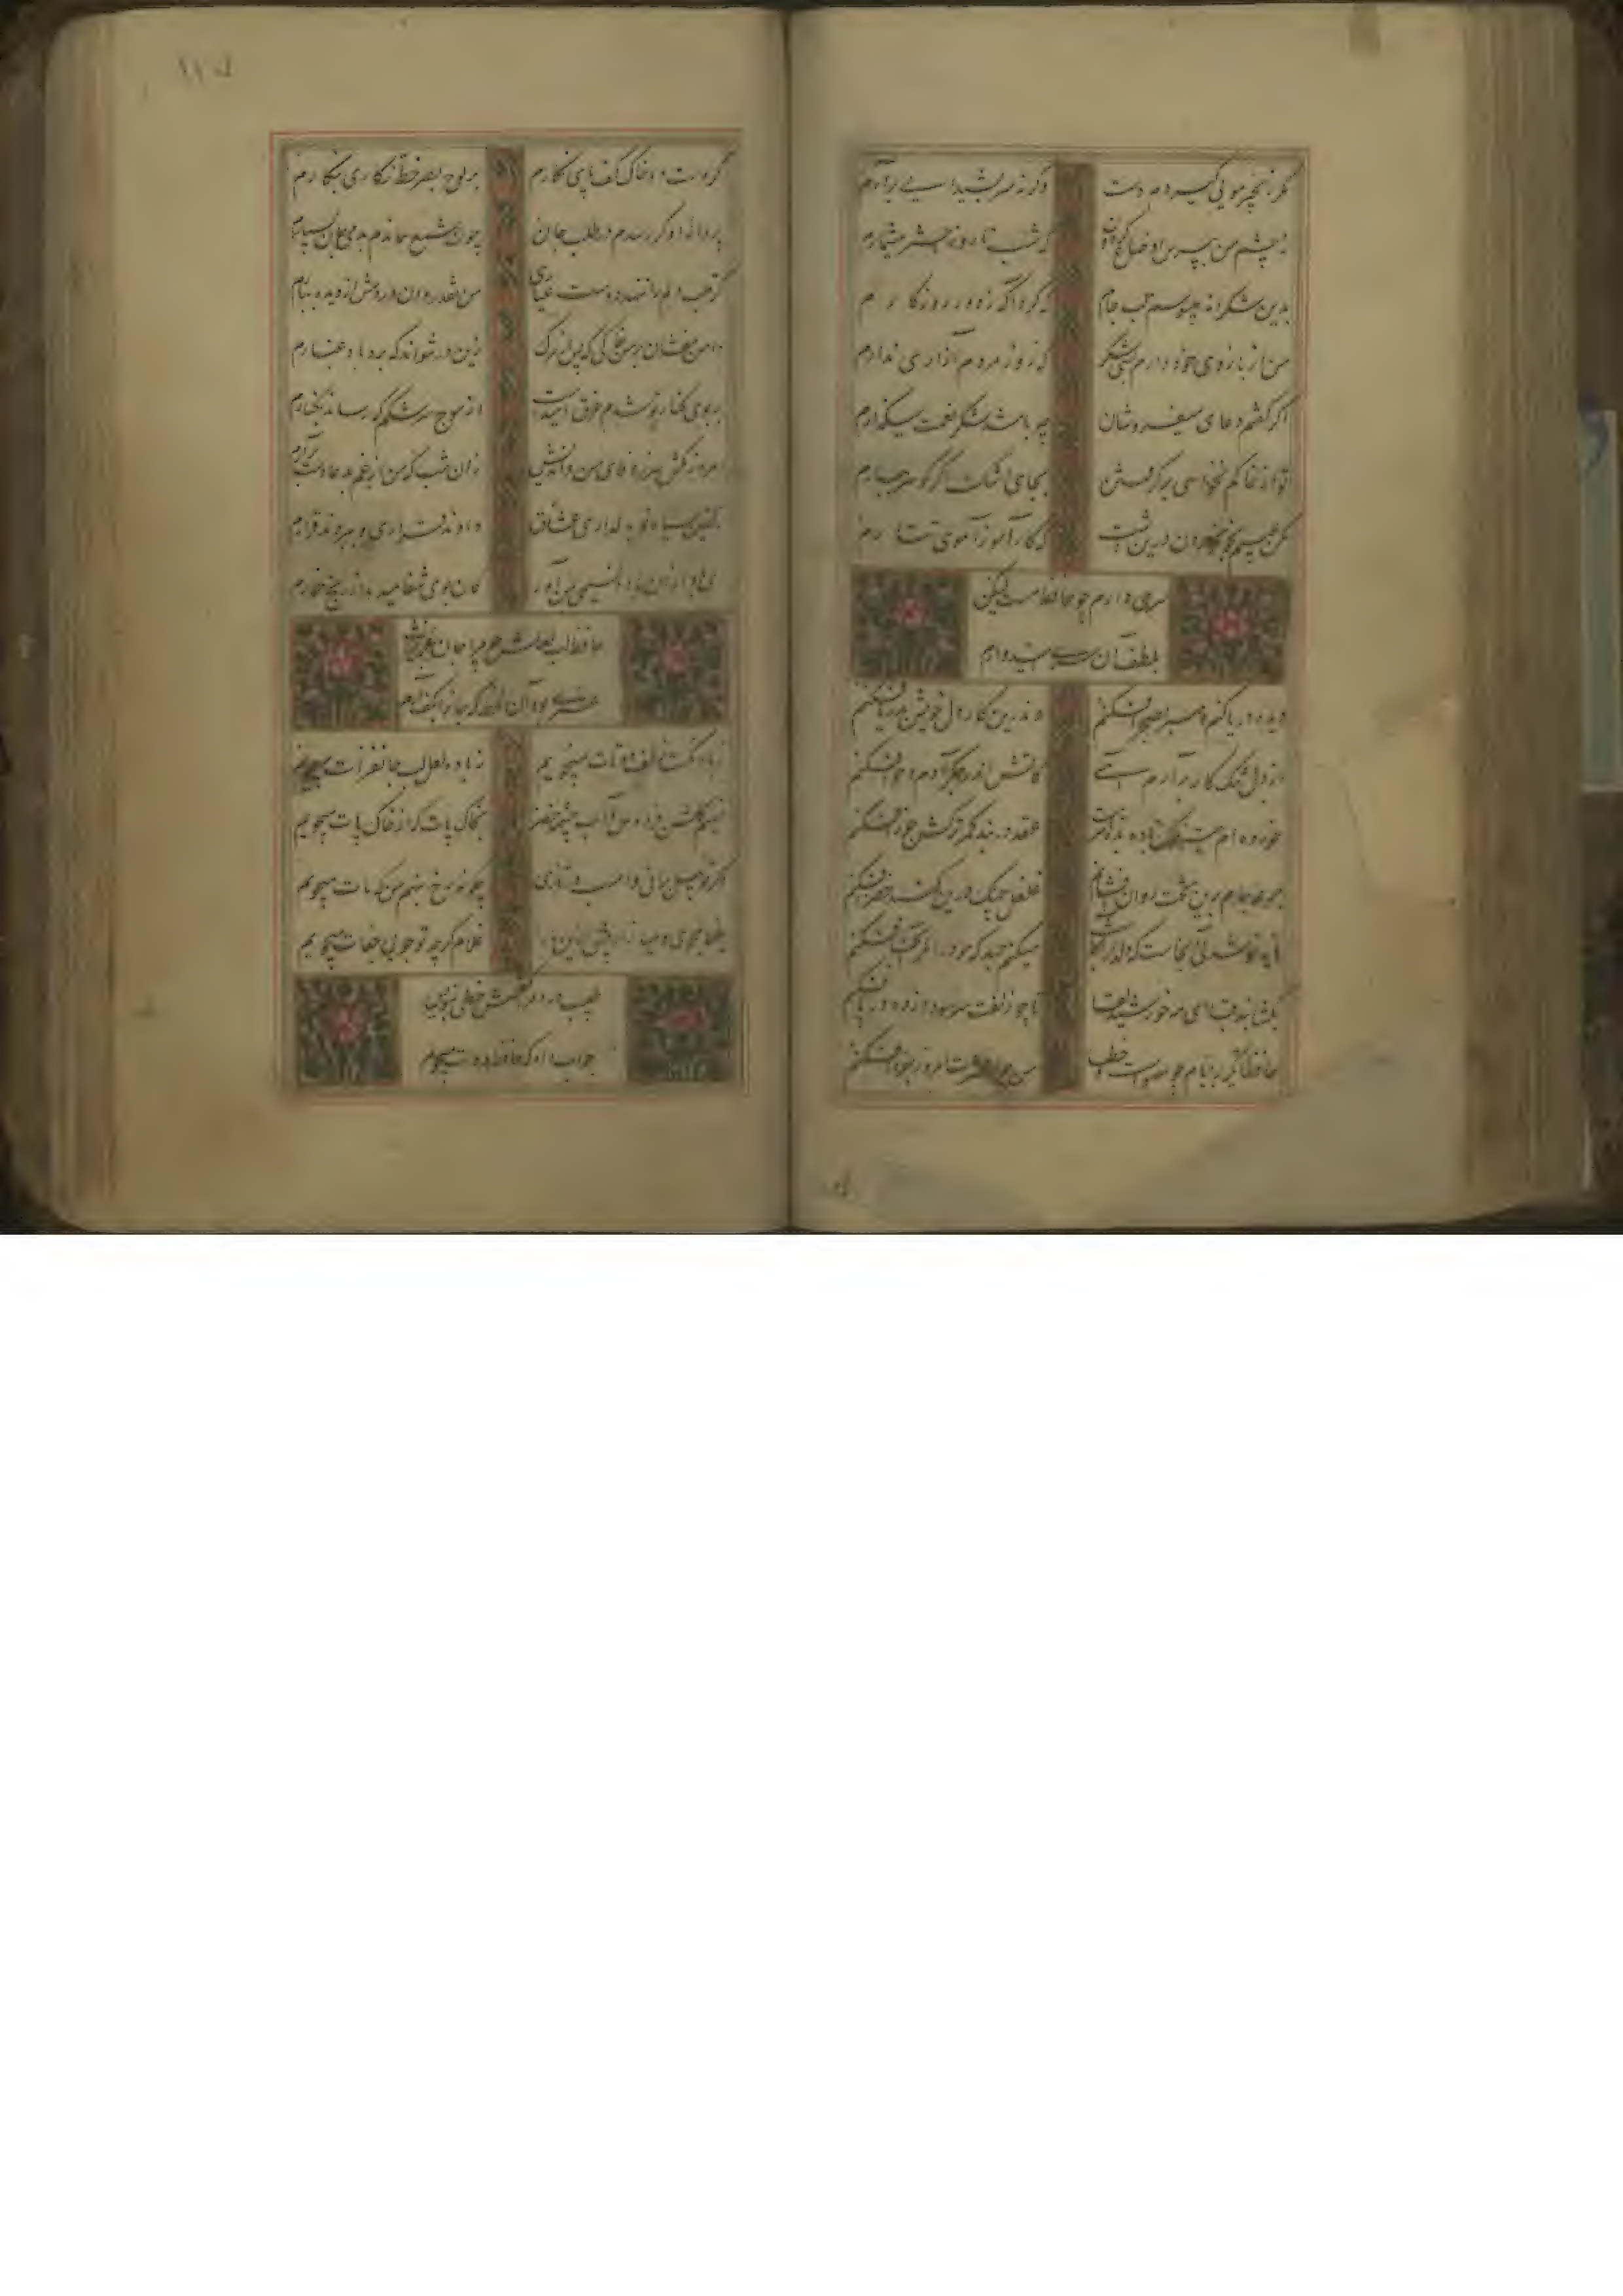 مگر زنجیر مویی گیردم دست
وگرنه سر بشیدایی برآرم
ز چشم من بپرس اوضاع گردون
که شب تا روز اختر میشمارم
بدین شکرانه میبوسم لب جام
که کرد آگه ز دور روزگارم
من از بازوی خود دارم بسی شکر
که زور مردم آزاری ندارم
اگر گفتم دعای میفروشان
چه باشد شکر نعمت میگذارم
تو از خاکم نخواهی برگرفتن
بجای اشک اگر گوهر ببارم
مکن عیبم بخون خوردن درین دشت
که کارآموز آهوی تتارم
سری دارم چو حافظ مست لیکن
بلطف آن سری امیدوارم
دیده دریا کنم و صبر بصحرا فکنم
وندرین کار دل خویش بدریا فکنم
از دل تنگ گنه کار برآرم آهی
کاتش اندر جگر آدم و حوا فکنم
خورده ام تیر فلک باده بده تا سرمست
عقده در بند کمر ترکش جوزا فکنم
جرعه جام برین تخت روان افشانم
غلغل چنگ درین گنبد مینا فکنم
مایه خوشدلی آنجاست که دلدار آنجا
میکنم جهد که خود را مگر آنجا فکنم
بگشا بند قبا ای مه خورشید لقا
تا چو زلفت سر سودا زده در پا فکنم
حافظا تکیه بر ایام چو سهوست و خطا
من چرا عشرت امروز بفردا فکنم
گر دست دهد خاک کف پای نگارم
بر لوح بصر خط غباری بنگارم
پروانه او گر رسدم در طلب جان
چون شمع هماندم بدمی جان بسپارم
گر قلب دلم را ننهد دوست عیاری
من نقد روان در دمش از دیده ببارم
دامن مفشان از من خاکی که پس از مرگ
زین در نتواند که برد باد غبارم
بر بوی کنار تو شدم غرق و امیدست
از موج سرشکم که رساند بکنارم
امروز مکش سر ز وفای من و اندیش
زان شب که من از غم بدعا دست برآرم
زلفین سیاه تو بدلداری عشاق
دادند قراری و ببردند قرارم
ای باد از آن باده نسیمی بمن آور
کان بوی شفا میدهد از رنج خمارم
حافظ لب لعلش چو مرا جان عزیزست
عمری بود آن لحظه که جان را بلب آرم
نسیم گلشن آب چشمه خضر
بخاک پات که از خاک پات میجویم
چگونه رخ نهم من که مات میجویم
طبیب درد
جواب داد که حافظ دوات میجویم